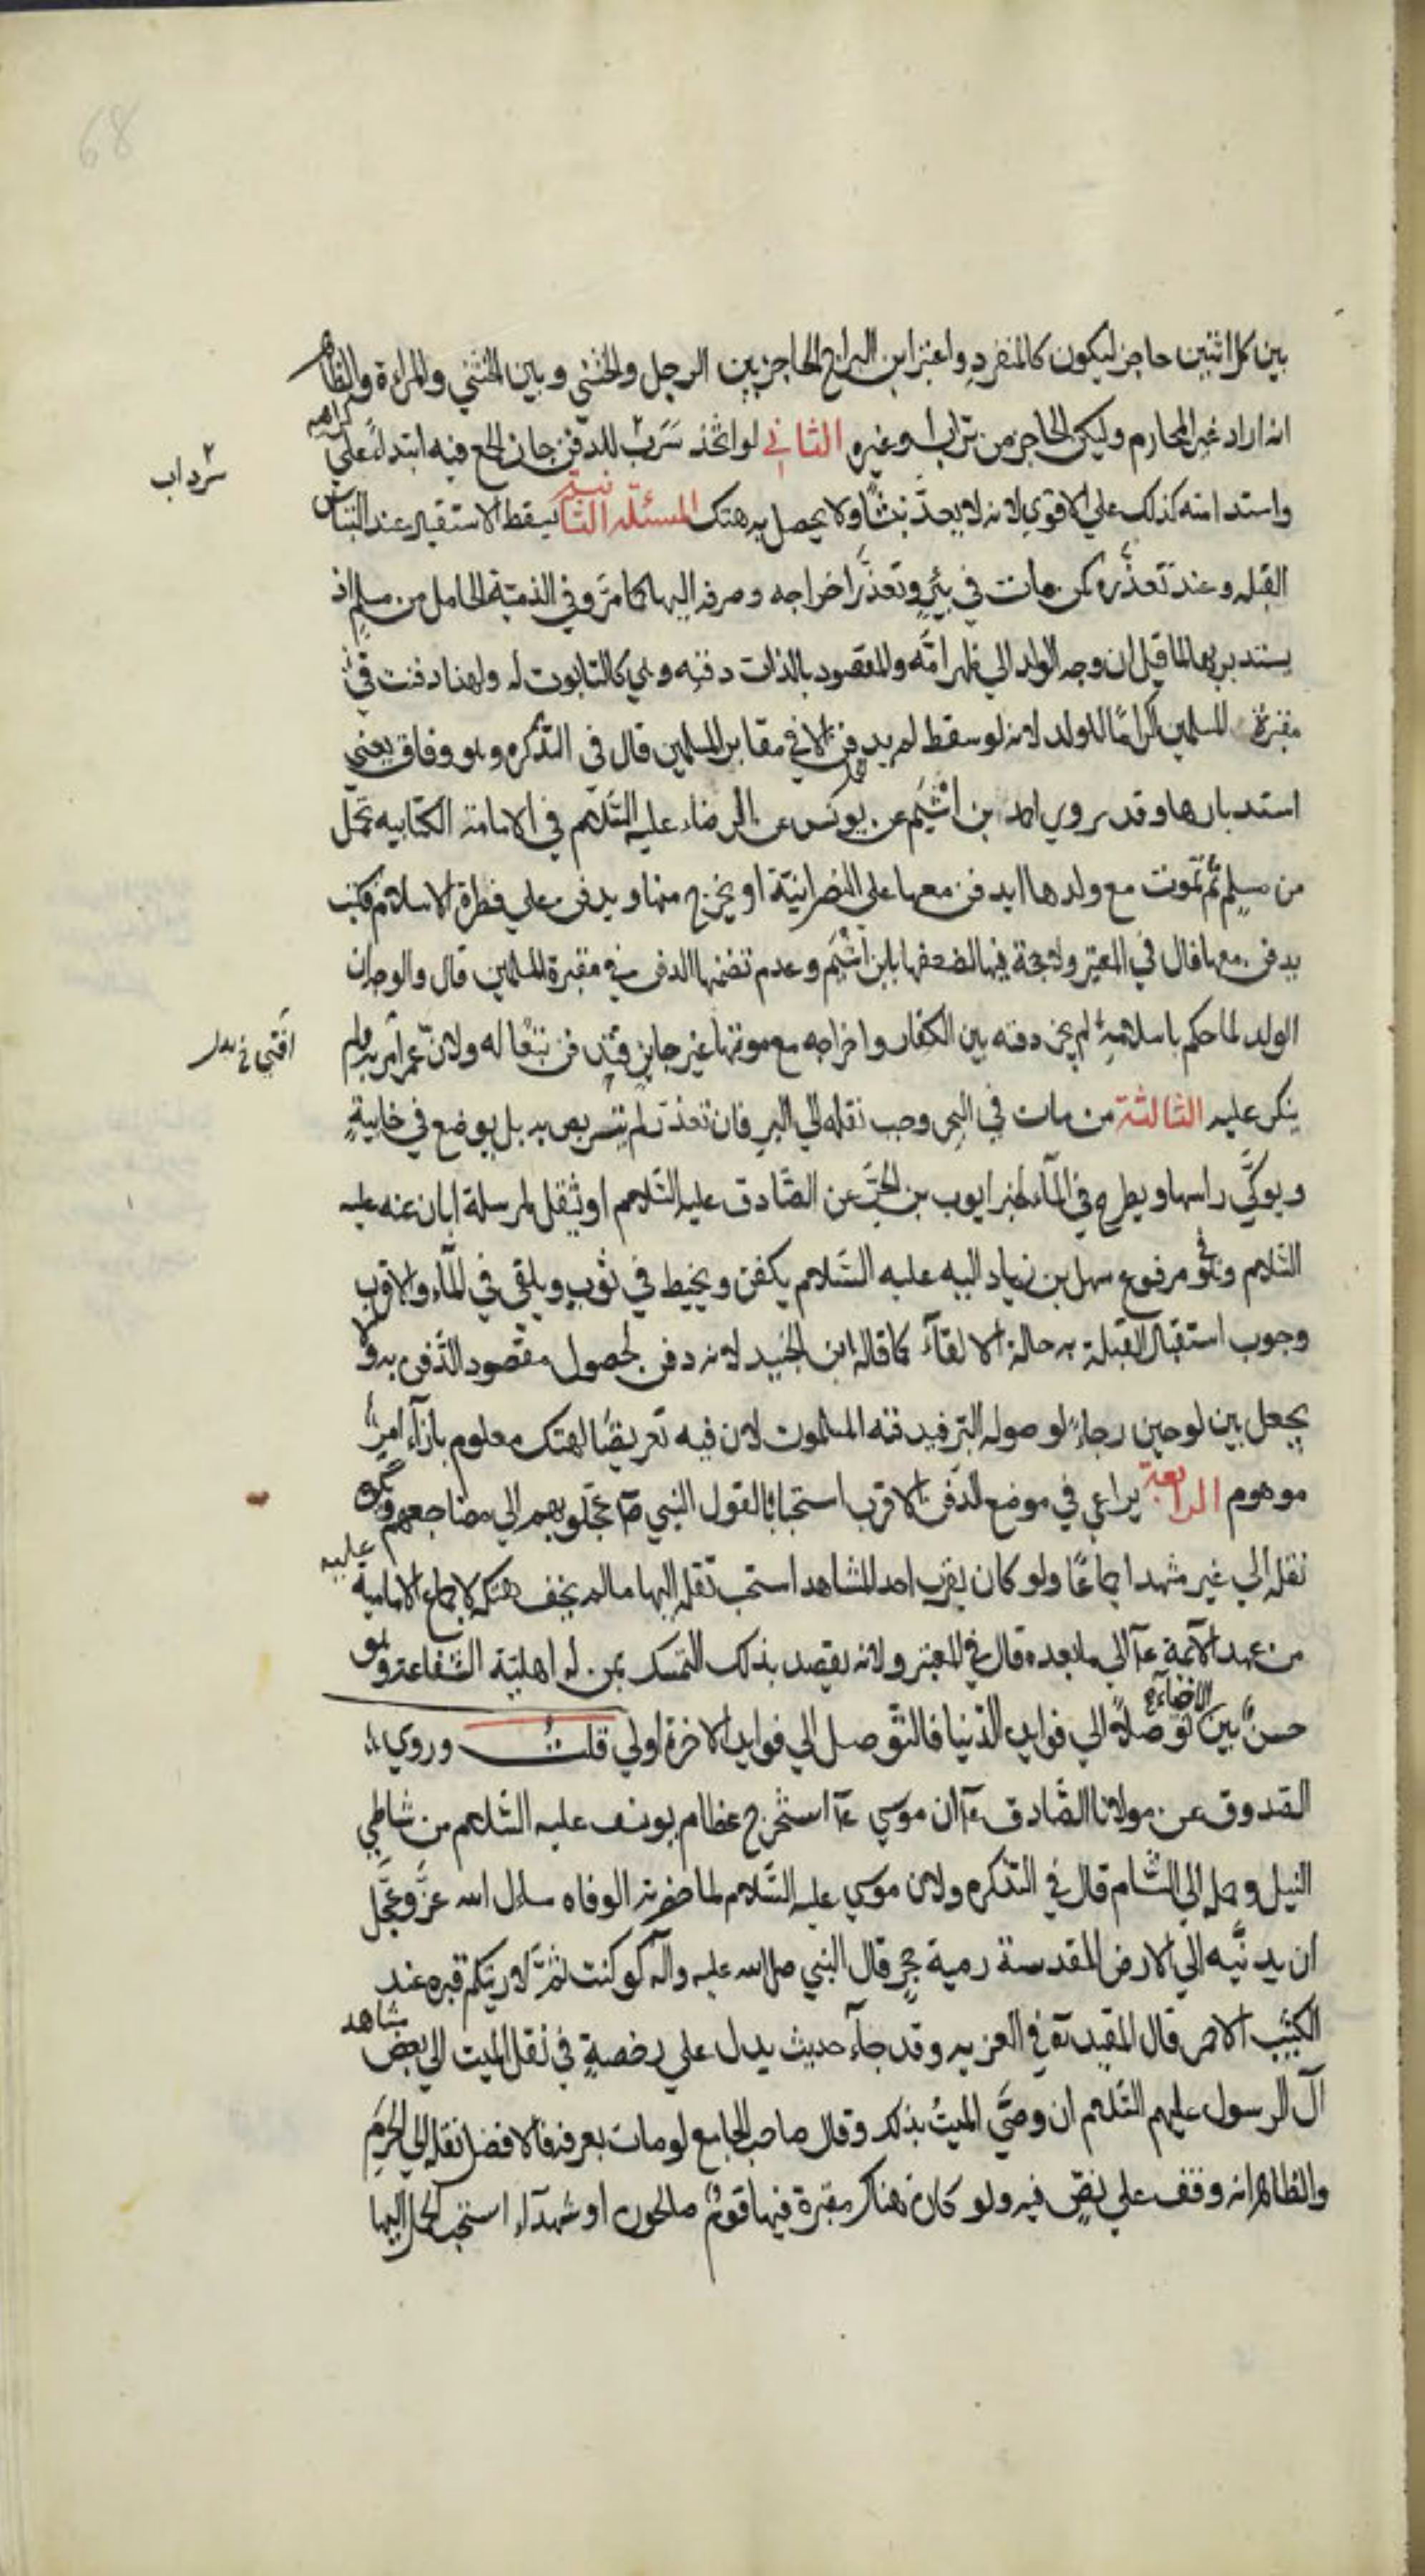 68
بين كل اثنين حاجز ليكون كالمنفرد واعتبر ابن البراج الحاجز بين الرجل والخنثي وبين الخنثي والمراءة والظاهر
انه اراد غير المحارم وليكن الحاجز من تراب وغيره الثاني لو اتخذ سرب للدفن جاز الجمع فيه ابتداءً علي كراهيه
سرداب
واستدامته كذلك علي الاقوي لانه لا يعدّ نبشًا ولا يحصل به هتك المسئلة الثانية يسقط الاستقبال عند التباس
القبله وعند تعذره كمن مات في بئرٍ وتعذّر اخراجه وصرفه اليها كما مرّ وفي الذمية الحامل من مسلم اذ
يستدبر بها لما قيل ان وجه الولد الي ظهر امّه والمقصود بالذات دفنه وهي كالتابوت له ولهذا دفنت في
مقبرة المسلمين اكرامًا للولد لانه لو سقط لم يدفن الا في مقابر المسلمين قال في التذكره وهو وفاق يعني
استدبارها وقد روي احمد بن اشيم عن يونس عن الرضاء عليه السّلام في الامامة الكتابيه تحمل
من مسلم ثم تموت مع ولدها ايدفن معها علي النصرانيّة او يخرج منها ويدفن علي فطرة الاسلام فكتب
يدفن معها قال في المعتبر ولا حجة فيها لضعفها بابن اشيم وعدم تضمنها الدفن في مقبرة المسلمين قال والوجه ان
الولد لما حكم باسلامه لم يجز دفنه بين الكفار واخراجه مع موتها غير جايز فتدفن تبعًا له ولان عمر امر به ولم
افتي خ بدل
ينكر عليه الثالثة من مات في البحر وجب نقله الي البر فان تعذّر لم يتربص به بل يوضع في خابيةٍ
ويوكّي راسها ويطرح في المآء لخبر ايوب بن الحرّ عن الصّادق عليه السّلام او يثقل لمرسلة ابان عنه عليه
السّلام وفي مرفوع سهل بن زياد اليه عليه السّلام يكفن ويخيط في ثوب ويلقي في المآء والاقرب
وجوب استقبال القبلة به حالة الالقآء كما قاله ابن الجنيد لانه دفن لحصول مقصود الدّفن به ولا
يجعل بين لوحين رجاءً لوصوله البر فيدفنه المسلمون لان فيه تعريضًا لهتك معلوم بازآء امرٍ
موهوم الرابعة يراعي في موضع الدّفن الاقرب استحبابًا لقول النبي صۤ عجّلوهم الي مضاجعهم ويكره
نقله الي غير مشهد اجماعًا ولو كان بقرب احد المشاهد استحب نقله اليها ما لم يخف هتكه لاجماع الاماميه عليه
من عهد الآئمة عۤ الي ما بعده قال في المعتبر ولانه يقصد بذلك التمسك بمن له اهلية الشّفاعة وهو
حسنٌ بين الاحياء توصّلاً الي فوايد الدّنيا فالتّوصل الي فوايد الاخرة اولي قلت وروي
الصّدوق عن مولانا الصّادق عۤ ان موسي عۤ استخرج عظام يوسف عليه السّلام من شاطي
النيل وحمله الي الشّام قال في التذكره ولان موسي عليه السّلام لما حضرته الوفاه سال الله عزّ وجلّ
ان يدنيه الي الارض المقدسة رمية حجرٍ قال النبي صلى الله عليه وآله لو كنت ثمّ لاريتكم قبره عند
الكثيب الاحمر قال المفيد في العزيه وقد جآء حديث يدل علي رخصةٍ في نقل الميت الي بعض مشاهد
آل الرسول عليهم السّلام ان وصّي الميتُ بذلك وقال صاحب الجامع لو مات بعرفة فالافضل نقله الي الحرم
والظاهر انه وقف علي نصٍ فيه ولو كان هناك مقبرة فيها قومٌ صالحون او شهدآء استحب الحمل اليها